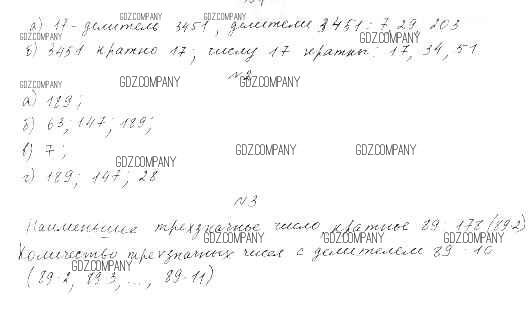 а) 17 - делитель 3451; делители 3451: 7, 29, 203
б) 3451 кратно 17; числу 17 кратны: 17, 34, 51
№2
а) 189;
б) 63; 147; 189;
в) 7;
г) 189; 147; 28
№3
Наименьшее трехзначное число, кратное 89 178 (89·2)
Количество трехзначных чисел с делителем 89 - 10
(89·2, 89·3, ..., 89·11)
GDZ.COMPANY
GDZ.COMPANY
GDZ.COMPANY
GDZ.COMPANY
GDZ.COMPANY
GDZ.COMPANY
GDZ.COMPANY
GDZ.COMPANY
GDZ.COMPANY
GDZ.COMPANY
GDZ.COMPANY
GDZ.COMPANY
GDZ.COMPANY
GDZ.COMPANY